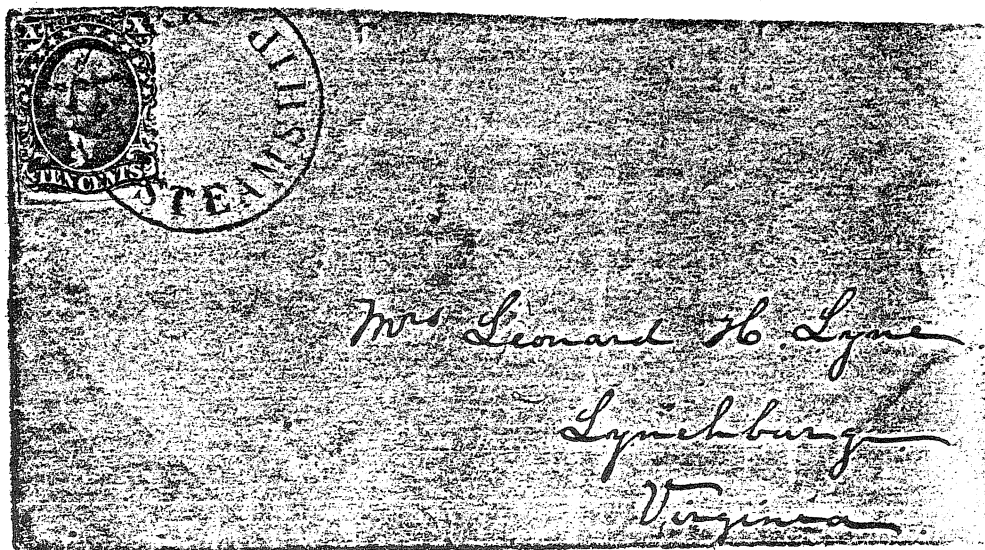 X U.S. POSTAGE X
TEN CENTS
STEAMSHIP
Mrs Leonard H. Lyne
Lynchburg
Virginia